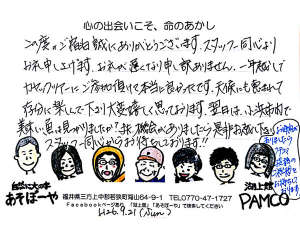 心の出会いこそ、命のあかし
この度のご宿泊誠にありがとうございます。スタッフ一同心より
お礼申し上げます。お礼が遅くなり申し訳ありません。
ご宿泊頂けて本当に良かったです。天候にも恵まれて
存分に楽しんで下さり大変嬉しく思っております。翌日は、小浜市内で
美味しい魚は見つかりましたか？又、機会がありましたら是非お越し下さい。
スタッフ一同心よりお待ちしております!!
自然に大の字
あそぼーや
福井県三方上中郡若狭町海山64-9-1 TEL0770-47-1727
Facebookページあり 「湖上館」「あそぼーや」で検索してください
湖上館
PAMCO
H26.9.21 (Sun)